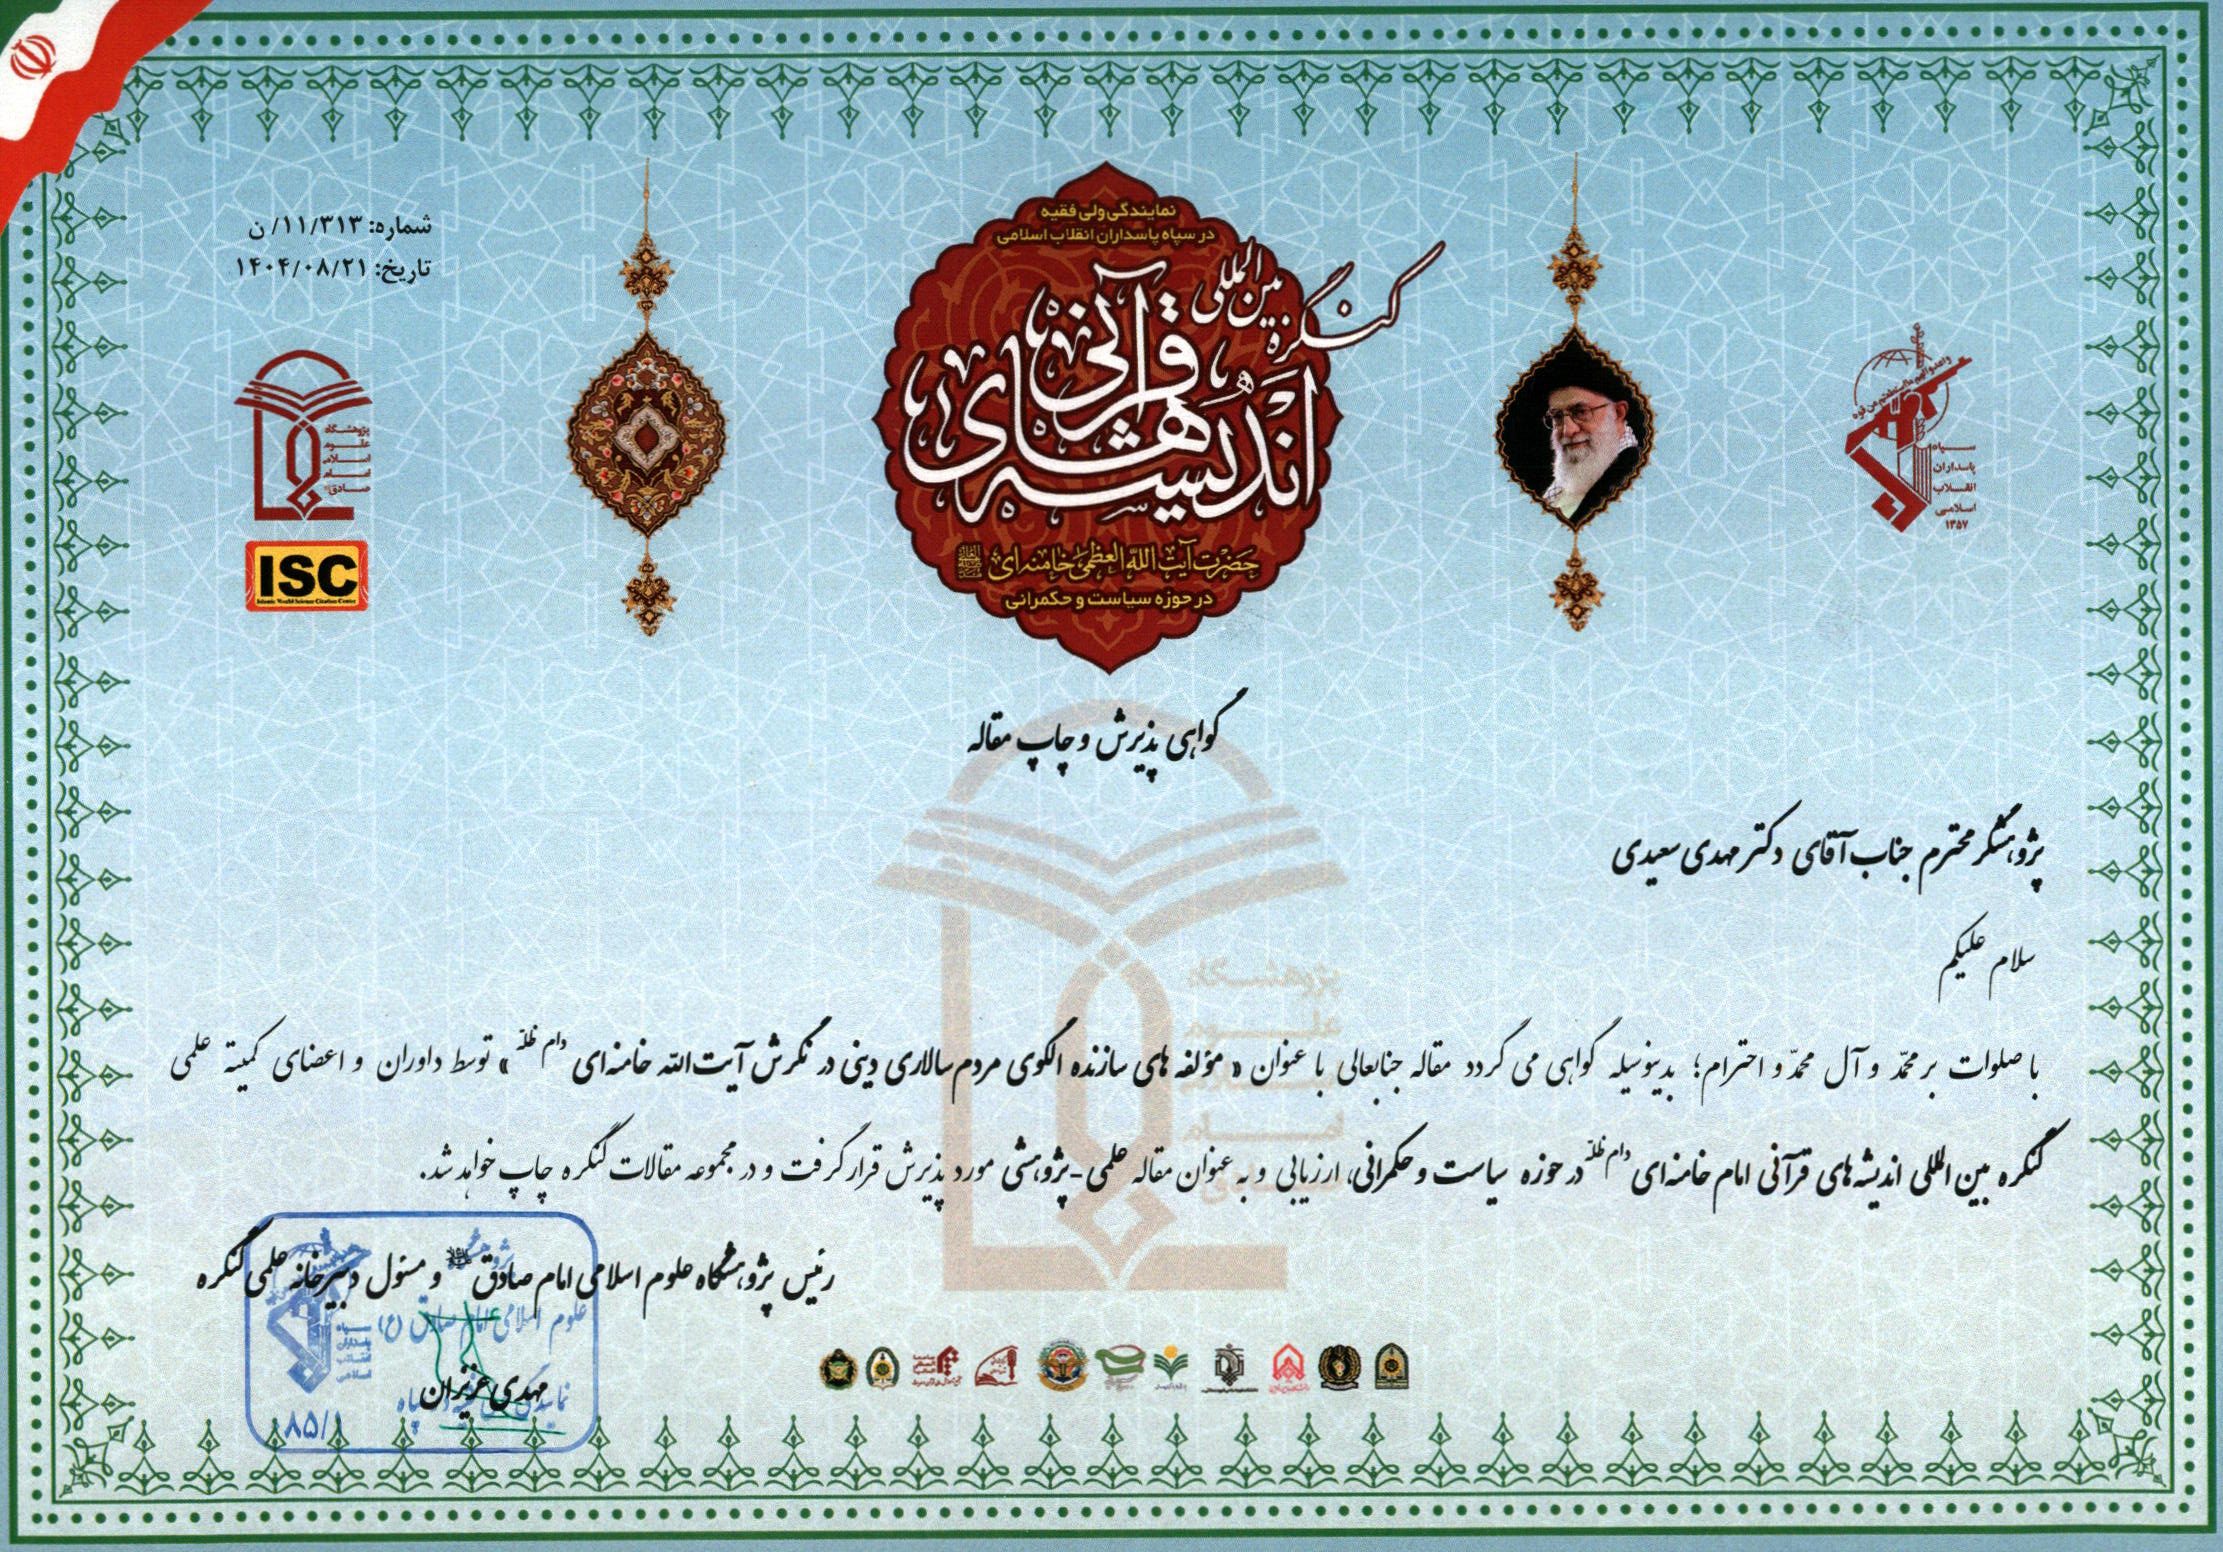 شماره: ۱۱/۳۱۳/ ن
تاریخ: ۱۴۰۴/۰۸/۲۱
نمایندگی ولی فقیه
در سپاه پاسداران انقلاب اسلامی
کنگره بین‌المللی
اندیشه‌های قرآنی
حضرت آیت الله العظمی خامنه‌ای
در حوزه سیاست و حکمرانی
سپاه
پاسداران
انقلاب
اسلامی
۱۳۵۷
پژوهشگاه
علوم
اسلامی
امام
صادق
ISC
Islamic World Science Citation Center
گواهی پذیرش و چاپ مقاله
پژوهشگر محترم جناب آقای دکتر مهدی سعیدی
سلام علیکم
با صلوات بر محمّد و آل محمّد و احترام؛ بدینوسیله گواهی می گردد مقاله جنابعالی با عنوان « مؤلفه های سازنده الگوی مردم سالاری دینی در نگرش آیت الله خامنه ای دام ظلّه » توسط داوران و اعضای کمیته علمی
کنگره بین المللی اندیشه های قرآنی امام خامنه ای دام ظلّه در حوزه سیاست و حکمرانی، ارزیابی و به عنوان مقاله علمی-پژوهشی مورد پذیرش قرار گرفت و در مجموعه مقالات کنگره چاپ خواهد شد.
رئیس پژوهشگاه علوم اسلامی امام صادق و مسئول دبیرخانه علمی کنگره
علوم اسلامی امام صادق (ع)
مهدی عزیزان
سپاه
پاسداران
انقلاب
اسلامی
۸۵/۱